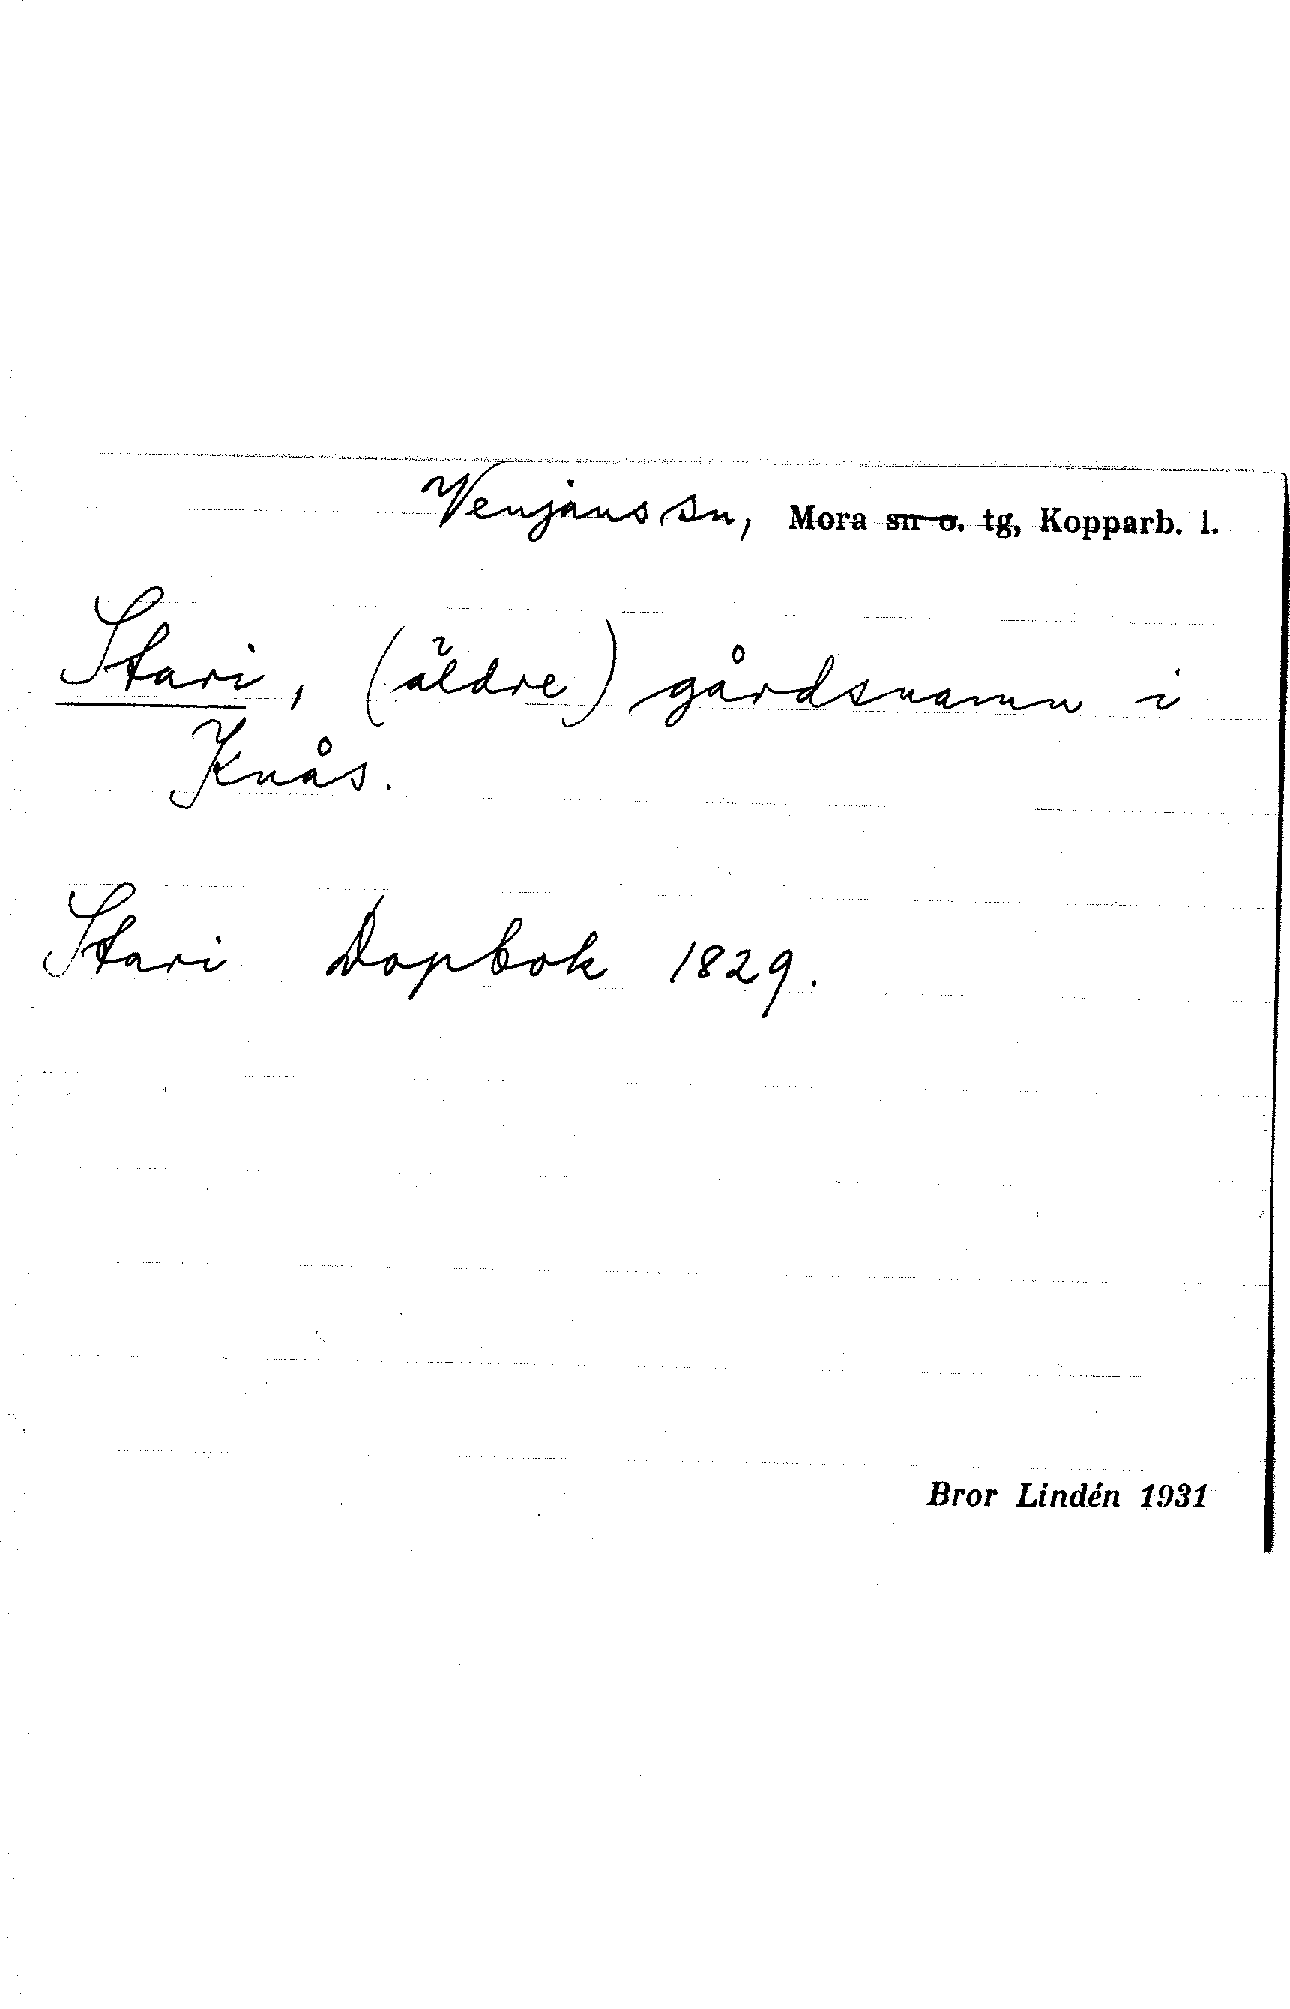 Venjans sn, Mora sn o. tg, Kopparb. l.
Stari, (äldre) gårdsnamn i
Knås.
Stari Dopbok 1829.
Bror Lindén 1931